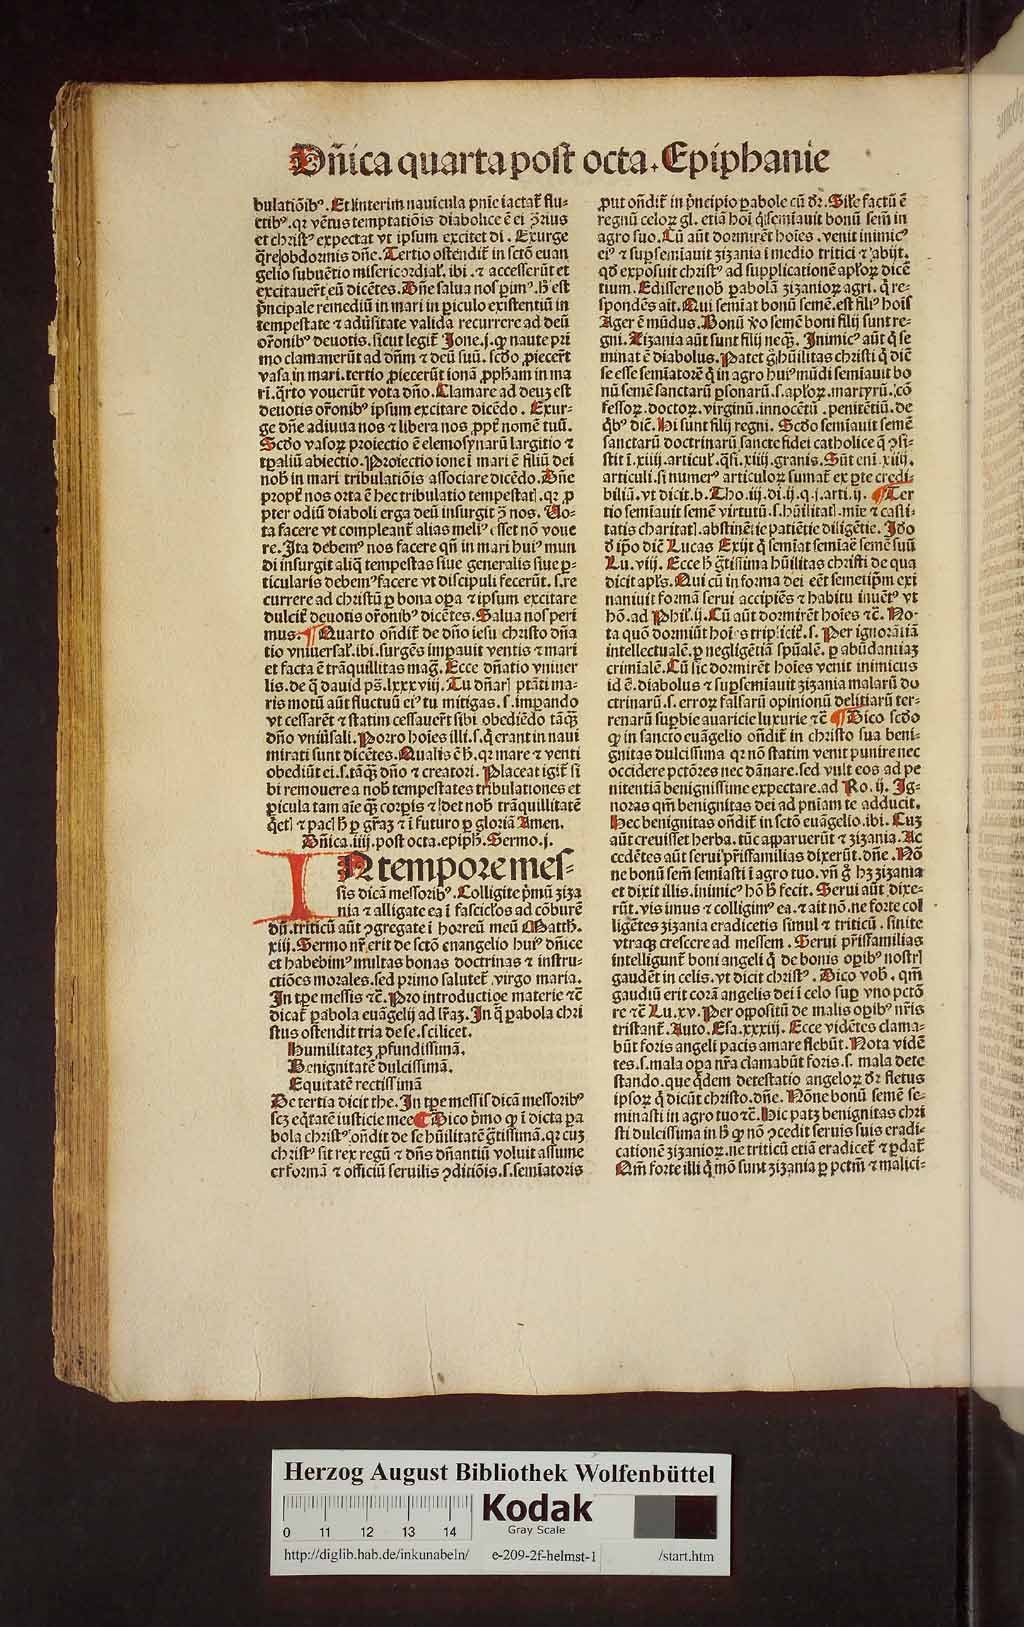 Dñica quarta post octa. Epiphanie
bulatiõibꝰ. Et interim nauicula pnie iactat᷑ flu-
ctibꝰ. qꝛ vẽtus temptatiõis diabolice ẽ ei ↄ̃rius
et christꝰ expectat vt ipsum excitet di. Exurge
q̃re obdormis dñe. Tertio ostendit᷑ in sctõ euan
gelio subuẽtio misericordial᷑. ibi. ⁊ accesserũt et
excitauer᷑t eũ dicẽtes. Dñe salua nos pimꝰ. h̃ est
p̃ncipale remediũ in mari in piculo existentiũ in
tempestate ⁊ adũsitate valida recurrere ad deũ
or̃onibꝰ deuotis. sicut legit᷑ Ione. j. ꝙ naute pri
mo clamanerũt ad dñm ⁊ deũ suũ. scd̃o ꝓiecer᷑t
vasa in mari. tertio ꝓiecerũt ionã ꝓpham in ma
ri. q̃rto vouerũt vota dño. Clamare ad deuȝ est
deuotis or̃onibꝰ ipsum excitare dicẽdo. Exur-
ge dñe adiuua nos ⁊ libera nos ꝓpt᷑ nomẽ tuũ.
Scd̃o vasoꝝ proiectio ẽ elemosynarũ largitio ⁊
tp̃aliũ abiectio. Proiectio ione ĩ mari ẽ filiũ dei
nob̃ in mari tribulatiõis associare dicẽdo. Dñe
propt᷑ nos orta ẽ hec tribulatio tempestatꝭ. qꝛ ꝓ
pter odiũ diaboli erga deũ insurgit ↄ̃ nos. Uo-
ta facere vt compleant᷑ alias meliꝰ esset nõ voue
re. Ita debemꝰ nos facere qñ in mari huiꝰ mun
di insurgit aliq̃ tempestas siue generalis siue ꝑ-
ticularis debemꝰ facere vt discipuli fecerũt. s. re
currere ad christũ ꝑ bona oꝑa ⁊ ipsum excitare
dulcit᷑ deuotis or̃onibꝰ dicẽtes. Salua nos peri
mus. ¶ Quarto oñdit᷑ de dño iesu christo dña
tio vniuersal᷑. ibi. surgẽs imꝑauit ventis ⁊ mari
et facta ẽ trãquillitas mag᷑. Ecce dñatio vniuer
lis. de q̃ dauid ps̃. lxxxviij. Tu dñarꝭ ptãti ma-
ris motũ aũt fluctuũ eiꝰ tu mitigas. s. imꝑando
vt cessarẽt ⁊ statim cessauer᷑t sibi obediẽdo tãq̃ȝ
dño vniũsali. Porro hoies illi. s. q̇ erant in naui
mirati sunt dicẽtes. Qualis ẽ h̃. qꝛ mare ⁊ venti
obediũt ei. s. tãq̃ȝ dño ⁊ creatori. Placeat igit᷑ si
bi remouere a nob̃ tempestates tribulationes et
ꝑicula tam aĩe q̃ȝ corꝑis ⁊ det nob̃ trãquillitatẽ
q̇etꝭ ⁊ pacꝭ h̃ ꝑ gr̃aȝ ⁊ ĩ futuro ꝑ gloriã Amen.
Dñica. iiij. post octa. epiph̃. Sermo. j.
IN tempore mes-
sis dicã messoribꝰ. Colligite p̃mũ ziza
nia ⁊ alligate ea ĩ fascicl̃os ad cõburẽ
dũ. triticũ aũt ↄgregate ĩ horreũ meũ Matth̃.
xiij. Sermo nr̃ erit de sctõ euangelio huiꝰ dñice
et habebimꝰ multas bonas doctrinas ⁊ instru-
ctiões morales. sed primo salutet᷑. virgo maria.
In tp̃e messis ⁊c̃. Pro introductiõe materie ⁊c̃
dicat᷑ ꝑabola euãgelij ad lr̃aȝ. In q̃ ꝑabola chri
stus ostendit tria de se. scilicet.
Humilitateȝ ꝓfundissimã.
Benignitatẽ dulcissimã.
Equitatẽ rectissimã
De tertia dicit the. In tp̃e messis dicã messoribꝰ
scȝ eq̇tatẽ iusticie mee ¶ Dico p̃mo ꝙ ĩ dicta ꝑa
bola christꝰ. oñdit de se hũilitatẽ g̃tissimã. qꝛ cuȝ
christꝰ sit rex regũ ⁊ dñs dñantiũ voluit assume
er formã ⁊ officiũ seruilis ↄditiõis. s. semĩatoris
ꝓut oñdit᷑ in p̃ncipio ꝑabole cũ dꝛ̃. Sil̃e factũ ẽ
regnũ celoꝝ gl̃. etiã hoĩ q̇ semĩauit bonũ sem̃ in
agro suo. Cũ aũt dormirẽt hoĩes. venit inimicꝰ
eiꝰ ⁊ suꝑsemĩauit zizania ĩ medio tritici ⁊ abijt.
qd̃ exposuit christꝰ ad supplicationẽ apl̃oꝝ dicẽ
tium. Edissere nob̃ ꝑabolã zizanioꝝ agri. q̇ re-
spondẽs ait. Qui semĩat bonũ semẽ. est filiꝰ hoĩs
Ager ẽ mũdus. Bonũ v̾o semẽ boni filij sunt re-
gni. Zizania aũt sunt filij neq̃ȝ. Inimicꝰ aũt q̇ se
minat ẽ diabolus. Patet g̊ hũilitas christi q̇ diẽ
se esse semĩatorẽ q̇ in agro huiꝰ mũdi semĩauit bo
nũ semẽ sanctarũ ꝑsonarũ. s. apl̃oꝝ. martyrũ. cõ
fessoꝝ. doctoꝝ. virginũ. innocẽtũ. penitẽtiũ. de
q̇bꝰ diẽ. Hi sunt filij regni. Scd̃o semĩauit semẽ
sanctarũ doctrinarũ sancte fidei catholice q̃ ↄsi-
stit ĩ. xiiij. articul᷑. q̃si. xiiij. granis. Sũt eni. xiiij.
articuli. si numerꝰ articuloꝝ sumat᷑ ex ꝑte credi-
biliũ. vt dicit. b. Tho. iij. di. ij. q. j. arti. ij. ¶ Ter
tio semĩauit semẽ virtutũ. s. hũilitatꝭ. mĩe ⁊ casti-
tatis charitatꝭ. abstinẽtie patiẽtie diligẽtie. Ido
d̃ ip̃o diẽ Lucas Exijt q̇ semĩat semĩae semẽ suũ
Lu. viij. Ecce h̃ g̃tissima hũilitas christi de qua
dicit apl̃s. Qui cũ in forma dei eẽt semetip̃m exi
naniuit formã serui accipiẽs ⁊ habitu inuẽtꝰ vt
hõ. ad Phil᷑. ij. Cũ aũt dormirẽt hoĩes ⁊c̃. No-
ta quõ dormiũt hoĩes triplicit᷑. s. Per ignorãtiã
intellectualẽ. ꝑ negligẽtiã spũalẽ. ꝑ abũdantiaȝ
crimĩalẽ. Cũ sic dormirẽt hoĩes venit inimicus
id ẽ. diabolus ⁊ suꝑsemĩauit zizania malarũ do
ctrinarũ. s. erroꝝ falsarũ opinionũ delitiarũ ter-
renarũ suꝑbie auaricie luxurie ⁊c̃ ¶ Dico scd̃o
ꝙ in sancto euãgelio oñdit᷑ in christo sua beni-
gnitas dulcissima qꝛ nõ statim venit punire nec
occidere pctõres nec dãnare. sed vult eos ad pe
nitentiã benignissime expectare. ad Ro. ij. Ig-
noras qm̃ benignitas dei ad pniam te adducit.
Hec benignitas oñdit᷑ in sctõ euãgelio. ibi. Cuȝ
aũt creuisset herba. tũc apparuerũt ⁊ zizania. Ac
cedẽtes aũt serui pr̃issamilias dixerũt. dñe. Nõ
ne bonũ sem̃ semĩasti ĩ agro tuo. vñ g̊ hȝ zizania
et dixit illis. inimicꝰ hõ h̃ fecit. Serui aũt dixe-
rũt. vis imus ⁊ colligimꝰ ea. ⁊ ait nõ. ne forte col
ligẽtes zizania eradicetis simul ⁊ triticũ. sinite
vtraqȝ crescere ad messem. Serui pr̃isfamilias
intelligunt᷑ boni angeli q̇ de bonis oꝑibꝰ nostrꝭ
gaudẽt in celis. vt dicit christꝰ. Dico vob̃. qm̃
gaudiũ erit corã angelis dei ĩ celo suꝑ vno pctõ
re ⁊c̃ Lu. xv. Per oppositũ de malis oꝑibꝰ nr̃is
tristant᷑. Auto. Esa. xxxiij. Ecce vidẽtes clama-
bũt foris angeli pacis amare flebũt. Nota vidẽ
tes. s. mala oꝑa nr̃a clamabũt foris. s. mala dete
stando. que q̇dem detestatio angeloꝝ dꝛ̃ fletus
ipsoꝝ q̇ dicũt christo. dñe. Nõne bonũ semẽ se-
minasti in agro tuo ⁊c̃. Hic patȝ benignitas chri
sti dulcissima in h̃ ꝙ nõ ↄcedit seruis suis eradi-
cationẽ zizanioꝝ. ne triticũ etiã eradicet᷑ ⁊ ꝑdat᷑
Qm̃ forte illi q̇ mõ sunt zizania ꝑ pctm̃ ⁊ malici-
Herzog August Bibliothek Wolfenbüttel
Kodak
Gray Scale
0 11 12 13 14
http://diglib.hab.de/inkunabeln/ e-209-2f-helmst-1 /start.htm